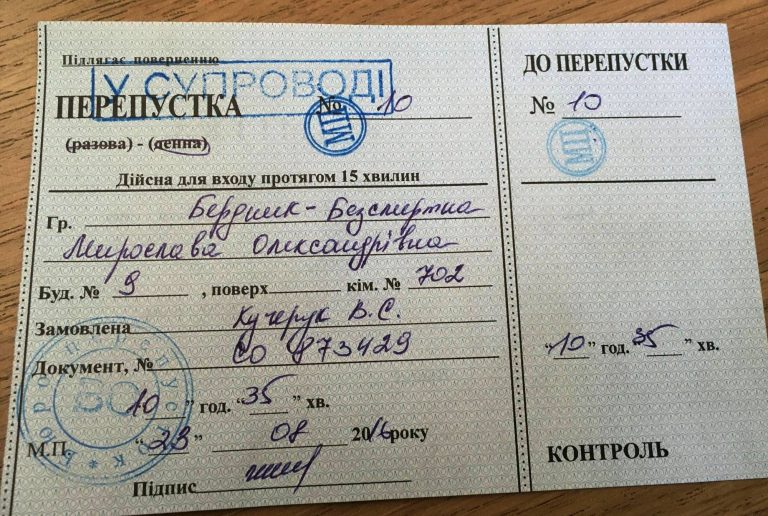 Підлягає поверненню
У СУПРОВОДІ
ПЕРЕПУСТКА № 10
МП
(разова) - (денна)
Дійсна для входу протягом 15 хвилин
Гр. Бердник-Безсмертна
Мирослава Олександрівна
Буд. № 9 , поверх кім. № 702
Замовлена Кучерук В.С.
Документ, № СО 873429
"10" год. "35" хв.
М.П. "23" 08 2016 року
Підпис
Бюро перепусток
ДО ПЕРЕПУСТКИ
№ 10
МП
"10" год. "35" хв.
КОНТРОЛЬ